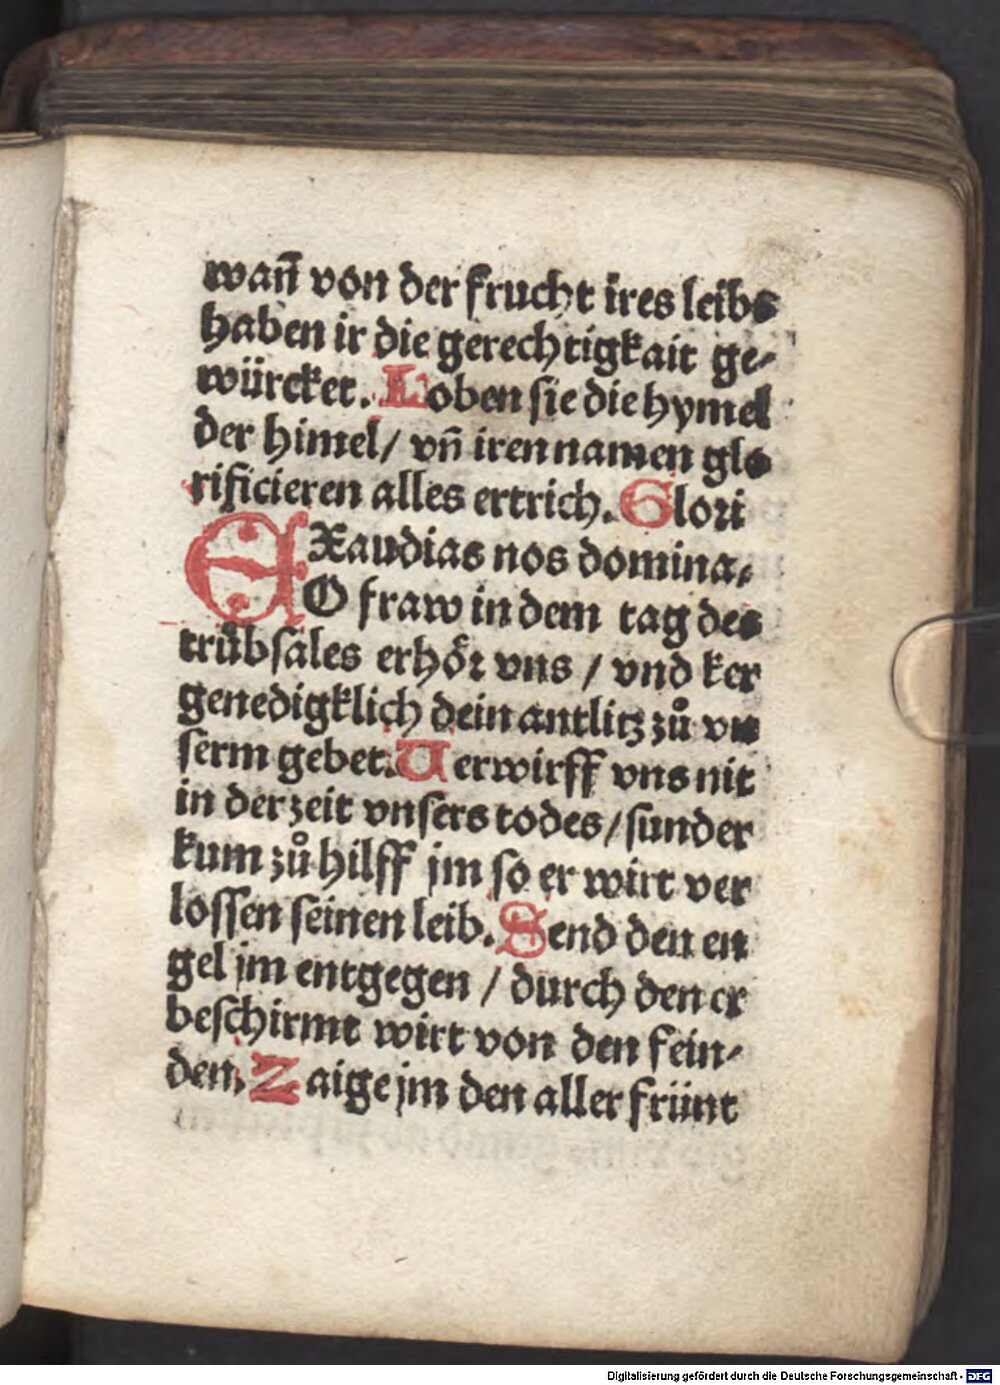 wan̄ von der frucht ires leibs
haben ir die gerechtigkait ge⸗
würcket. Loben sie die hymel
der himel/ vn̄ iren namen glo
rificieren alles ertrich. Glori
EXaudias nos domina,
O fraw in dem tag des
trůbsales erhoͤr vns / vnd ker
genedigklich dein antlitz zů vn
serm gebet. Uerwirff vns nit
in der zeit vnsers todes/ sunder
kum zů hilff jm so er wirt ver
lossen seinen leib. Send den en
gel jm entgegen / durch den er
beschirmt wirt von den fein⸗
den. Zaige jm den aller frünt
Digitalisierung gefördert durch die Deutsche Forschungsgemeinschaft - DFG